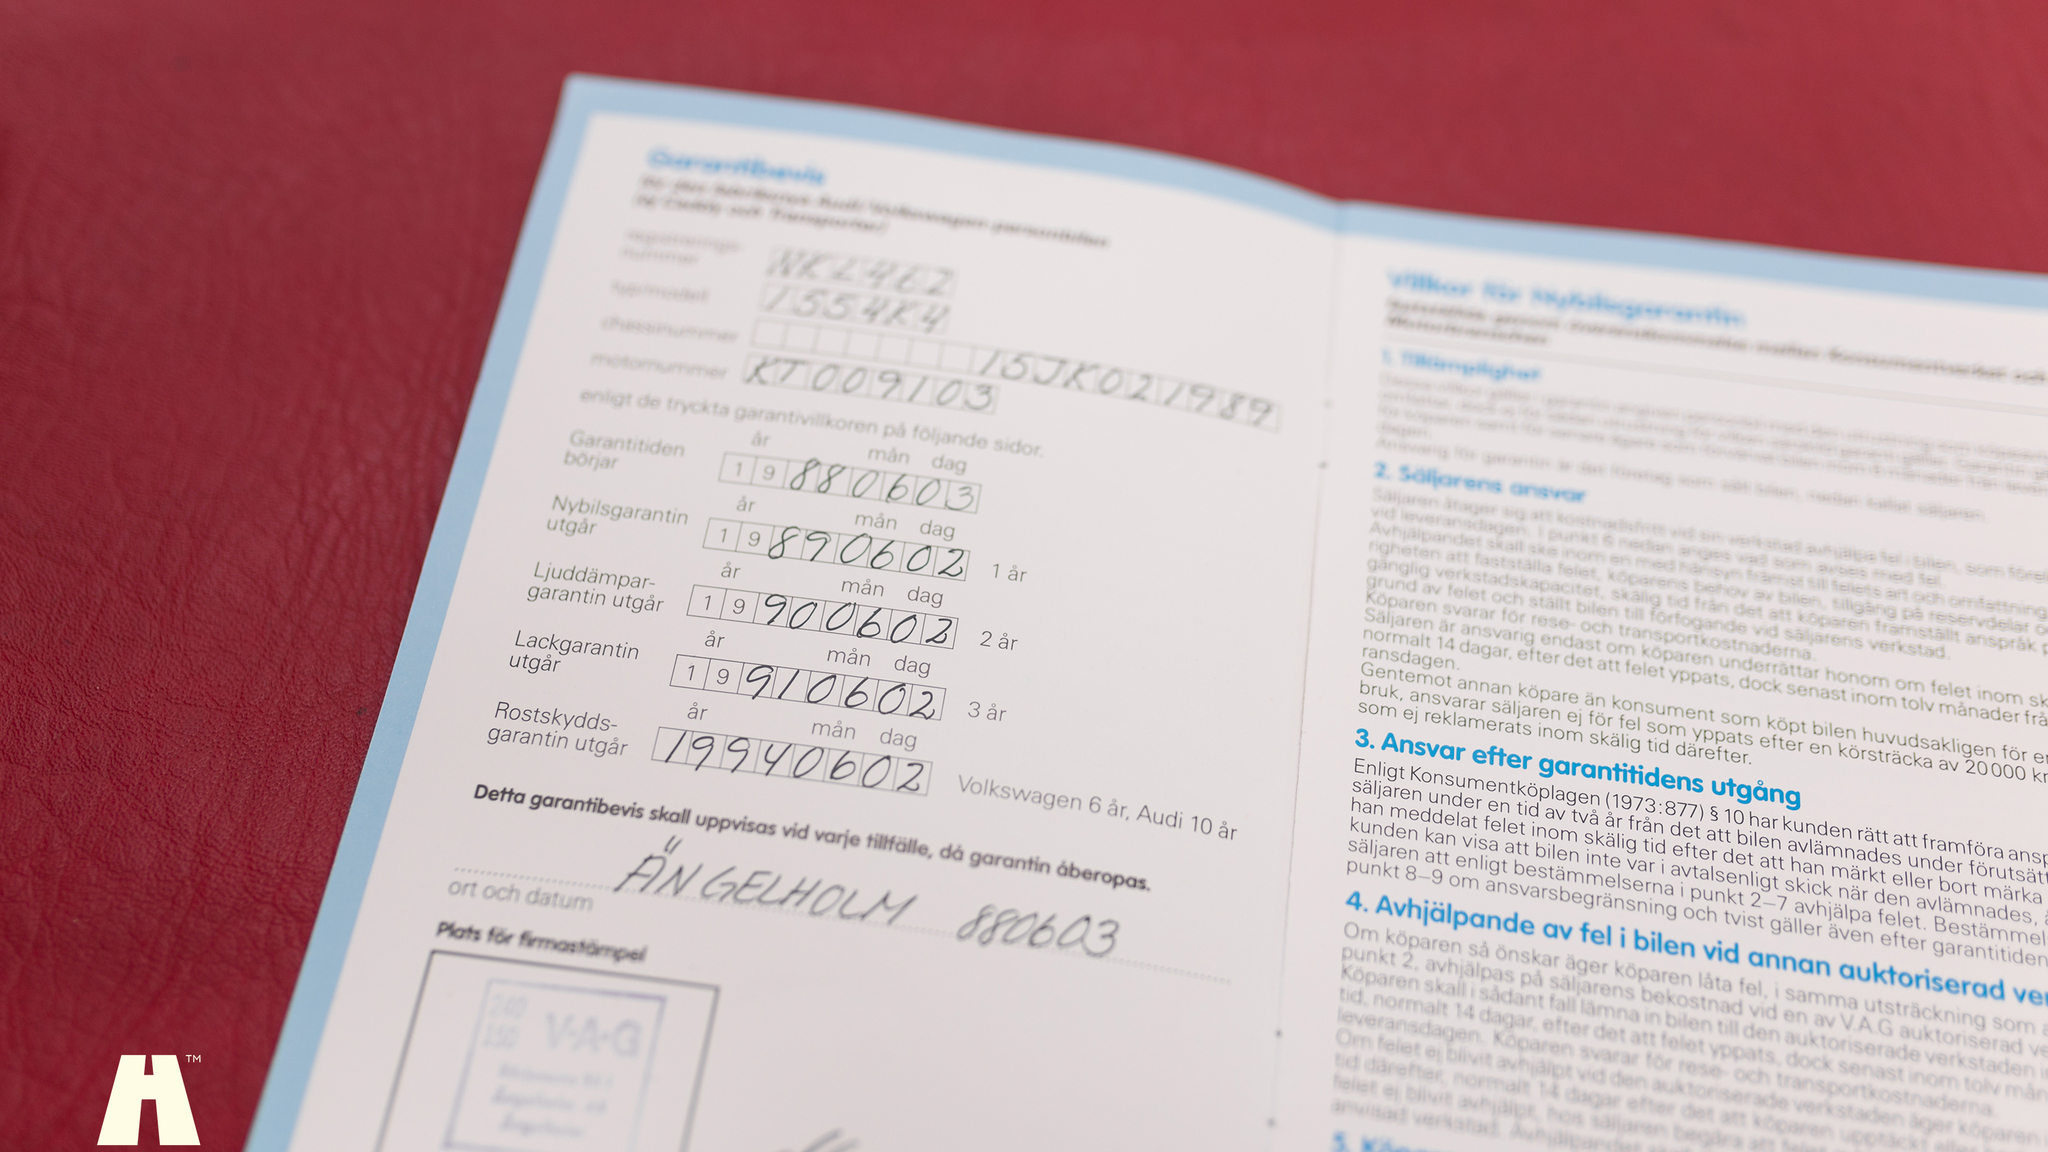 Garantibevis
för den fabriksnya Audi/Volkswagen-personbilen
(ej Caddy och Transporter)
registrerings-
nummer
NKL462
typ/modell
1554K4
chassinummer
15JK021989
motornummer
KT009103
enligt de tryckta garantivillkoren på följande sidor.
Garantitiden
börjar
år mån dag
19880603
Nybilsgarantin
utgår
år mån dag
19890602 1 år
Ljuddämpar-
garantin utgår
år mån dag
19900602 2 år
Lackgarantin
utgår
år mån dag
19910602 3 år
Rostskydds-
garantin utgår
år mån dag
19940602 Volkswagen 6 år, Audi 10 år
Detta garantibevis skall uppvisas vid varje tillfälle, då garantin åberopas.
ÄNGELHOLM 880603
ort och datum
Plats för firmastämpel
240
150
V·A·G
Villkor för Nybilsgarantin
1. Tillämplighet
Ansvarig för garantin är det företag som sålt bilen, nedan kallat säljaren.
2. Säljarens ansvar
Säljaren åtager sig att kostnadsfritt vid sin verkstad avhjälpa fel i bilen, som före
vid leveransdagen. I punkt 6 nedan anges vad som avses med fel.
Avhjälpandet skall ske inom en med hänsyn främst till felets art och omfattning,
righeten att fastställa felet, köparens behov av bilen, tillgång på reservdelar o
gänglig verkstadskapacitet, skälig tid från det att köparen framställt anspråk p
grund av felet och ställt bilen till förfogande vid säljarens verkstad.
Köparen svarar för rese- och transportkostnaderna.
Säljaren är ansvarig endast om köparen underrättar honom om felet inom sk
normalt 14 dagar, efter det att felet yppats, dock senast inom tolv månader frå
ransdagen.
Gentemot annan köpare än konsument som köpt bilen huvudsakligen för e
bruk, ansvarar säljaren ej för fel som yppats efter en körsträcka av 20 000 k
som ej reklamerats inom skälig tid därefter.
3. Ansvar efter garantitidens utgång
Enligt Konsumentköplagen (1973:877) § 10 har kunden rätt att framföra ansp
säljaren under en tid av två år från det att bilen avlämnades under förutsätt
han meddelat felet inom skälig tid efter det att han märkt eller bort märka
kunden kan visa att bilen inte var i avtalsenligt skick när den avlämnades, ä
säljaren att enligt bestämmelserna i punkt 2–7 avhjälpa felet. Bestämmel
punkt 8–9 om ansvarsbegränsning och tvist gäller även efter garantitiden
4. Avhjälpande av fel i bilen vid annan auktoriserad ve
Om köparen så önskar äger köparen låta fel, i samma utsträckning som a
punkt 2, avhjälpas på säljarens bekostnad vid en av V.A.G auktoriserad ve
Köparen skall i sådant fall lämna in bilen till den auktoriserade verkstaden i
tid, normalt 14 dagar, efter det att felet yppats, dock senast inom tolv mån
leveransdagen. Köparen svarar för rese- och transportkostnaderna.
Om felet ej blivit avhjälpt vid den auktoriserade verkstaden äger köparen
tid därefter, normalt 14 dagar efter det att köparen upptäckt elle
felet ej blivit avhjälpt, hos säljaren begära att felet
anvisad verkstad.
5.
H™